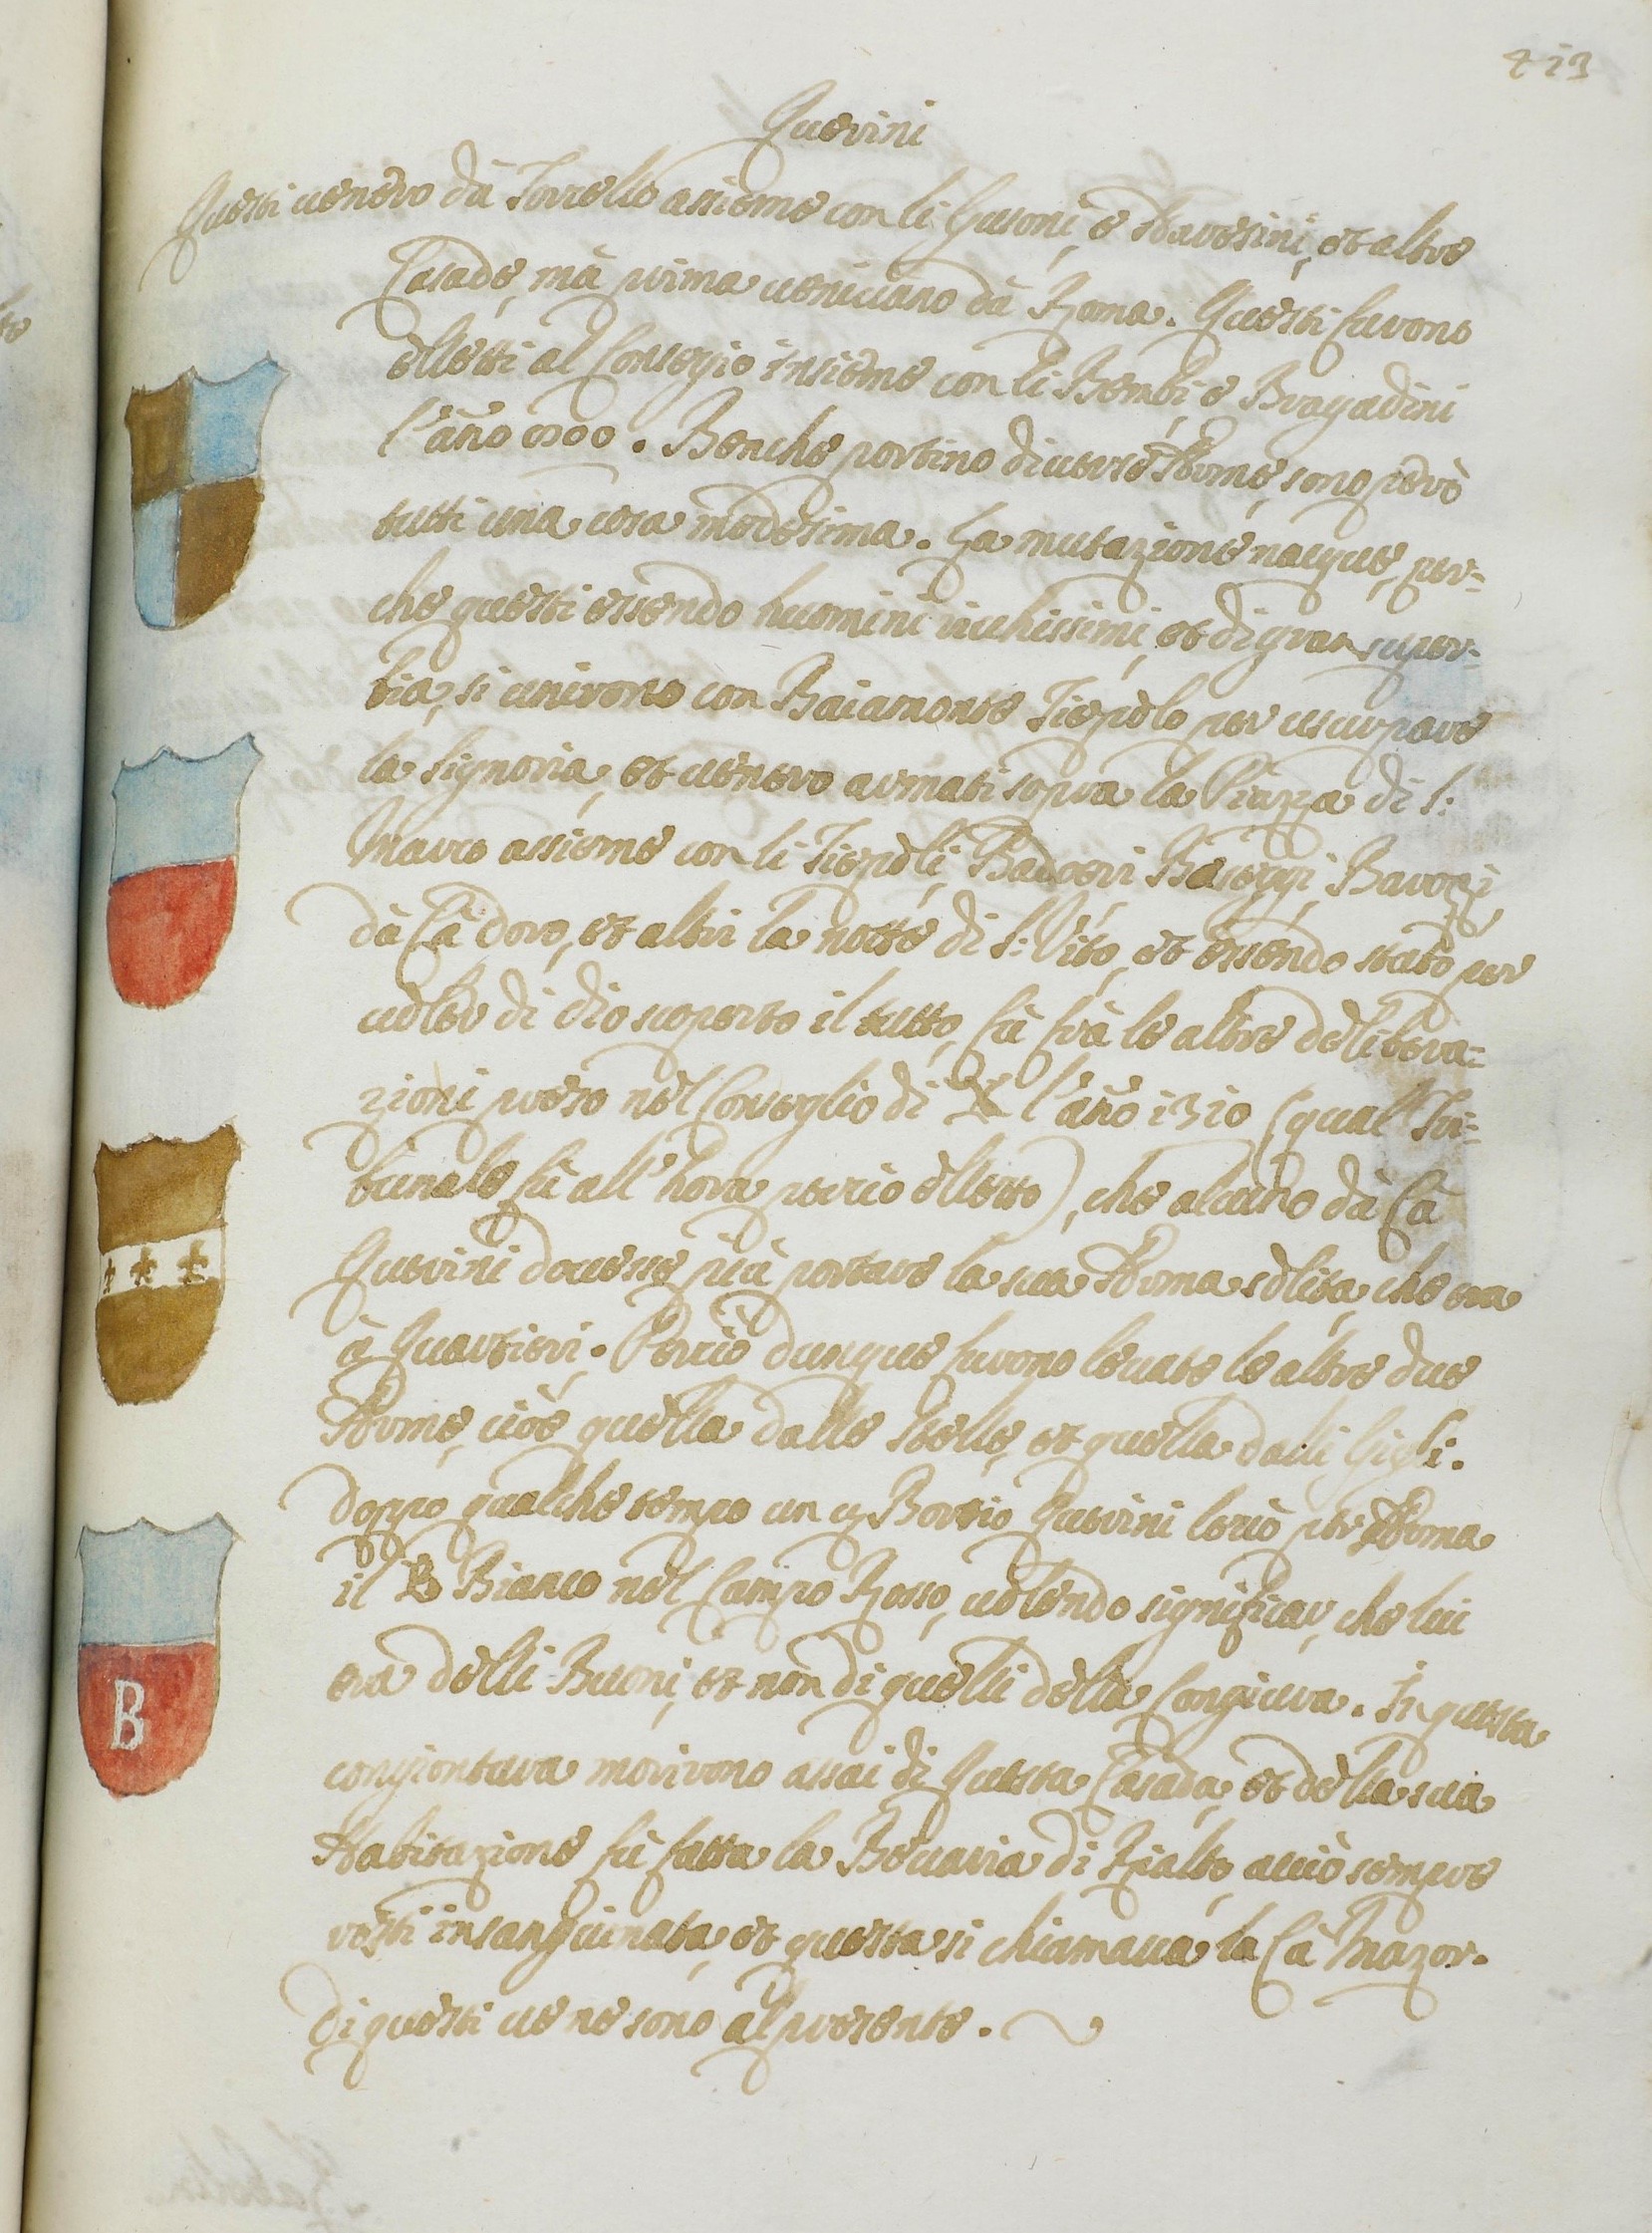 213
Querini
Questi uenero dà Torcello assieme con li Gusoni, e Navesini, et altre
Casade, mà prima ueniuano dà Roma. Questi furono
elletti al Consegio insieme con li Bembi, e Bragadini
l'año 0800. Benche portino diuerse Arme, sono però
tutti una cosa medesima. La mutazione nacque, per=
che questi essendo huomini ricchissimi, et di gran super=
bia, si unirono con Baiamonte Tiepolo per usurpare
la Signoria, et uenero armati sopra la Piazza di S:
Marco assieme con li Tiepoli, Badoeri Baseggi, Barozi,
dà Cà Doro, et altri la notte di S: Vito, et essendo stato per
uoler di Dio scoperto il tutto, fù frà le altre delibera=
zioni preso nel Conseglio di X l'año 1310 (qual Tri=
bunale fù all'hora perciò elletto), che alcuno dà Cà
Querini douesse più portare la sua Arma solita, che era
à Quartieri. Perciò dunque furono leuate le altre due
Arme, cioè quella dalle Stelle, et quella dalli Gigli.
Doppo qualche tempo un q Bortio Querini leuò per Arma
il B Bianco nel Campo Rosso, uolendo significar, che lui
era delli Buoni, et non di quelli della Congiura. In questa
congiontura morirono assai di questa Casada, et della sua
Habitazione fù fatta la Beccaria di Rialto acciò sempre
resti insanguinata, et questa si chiamaua la Cà Mazor.
Di questi ue ne sono al presente.
B